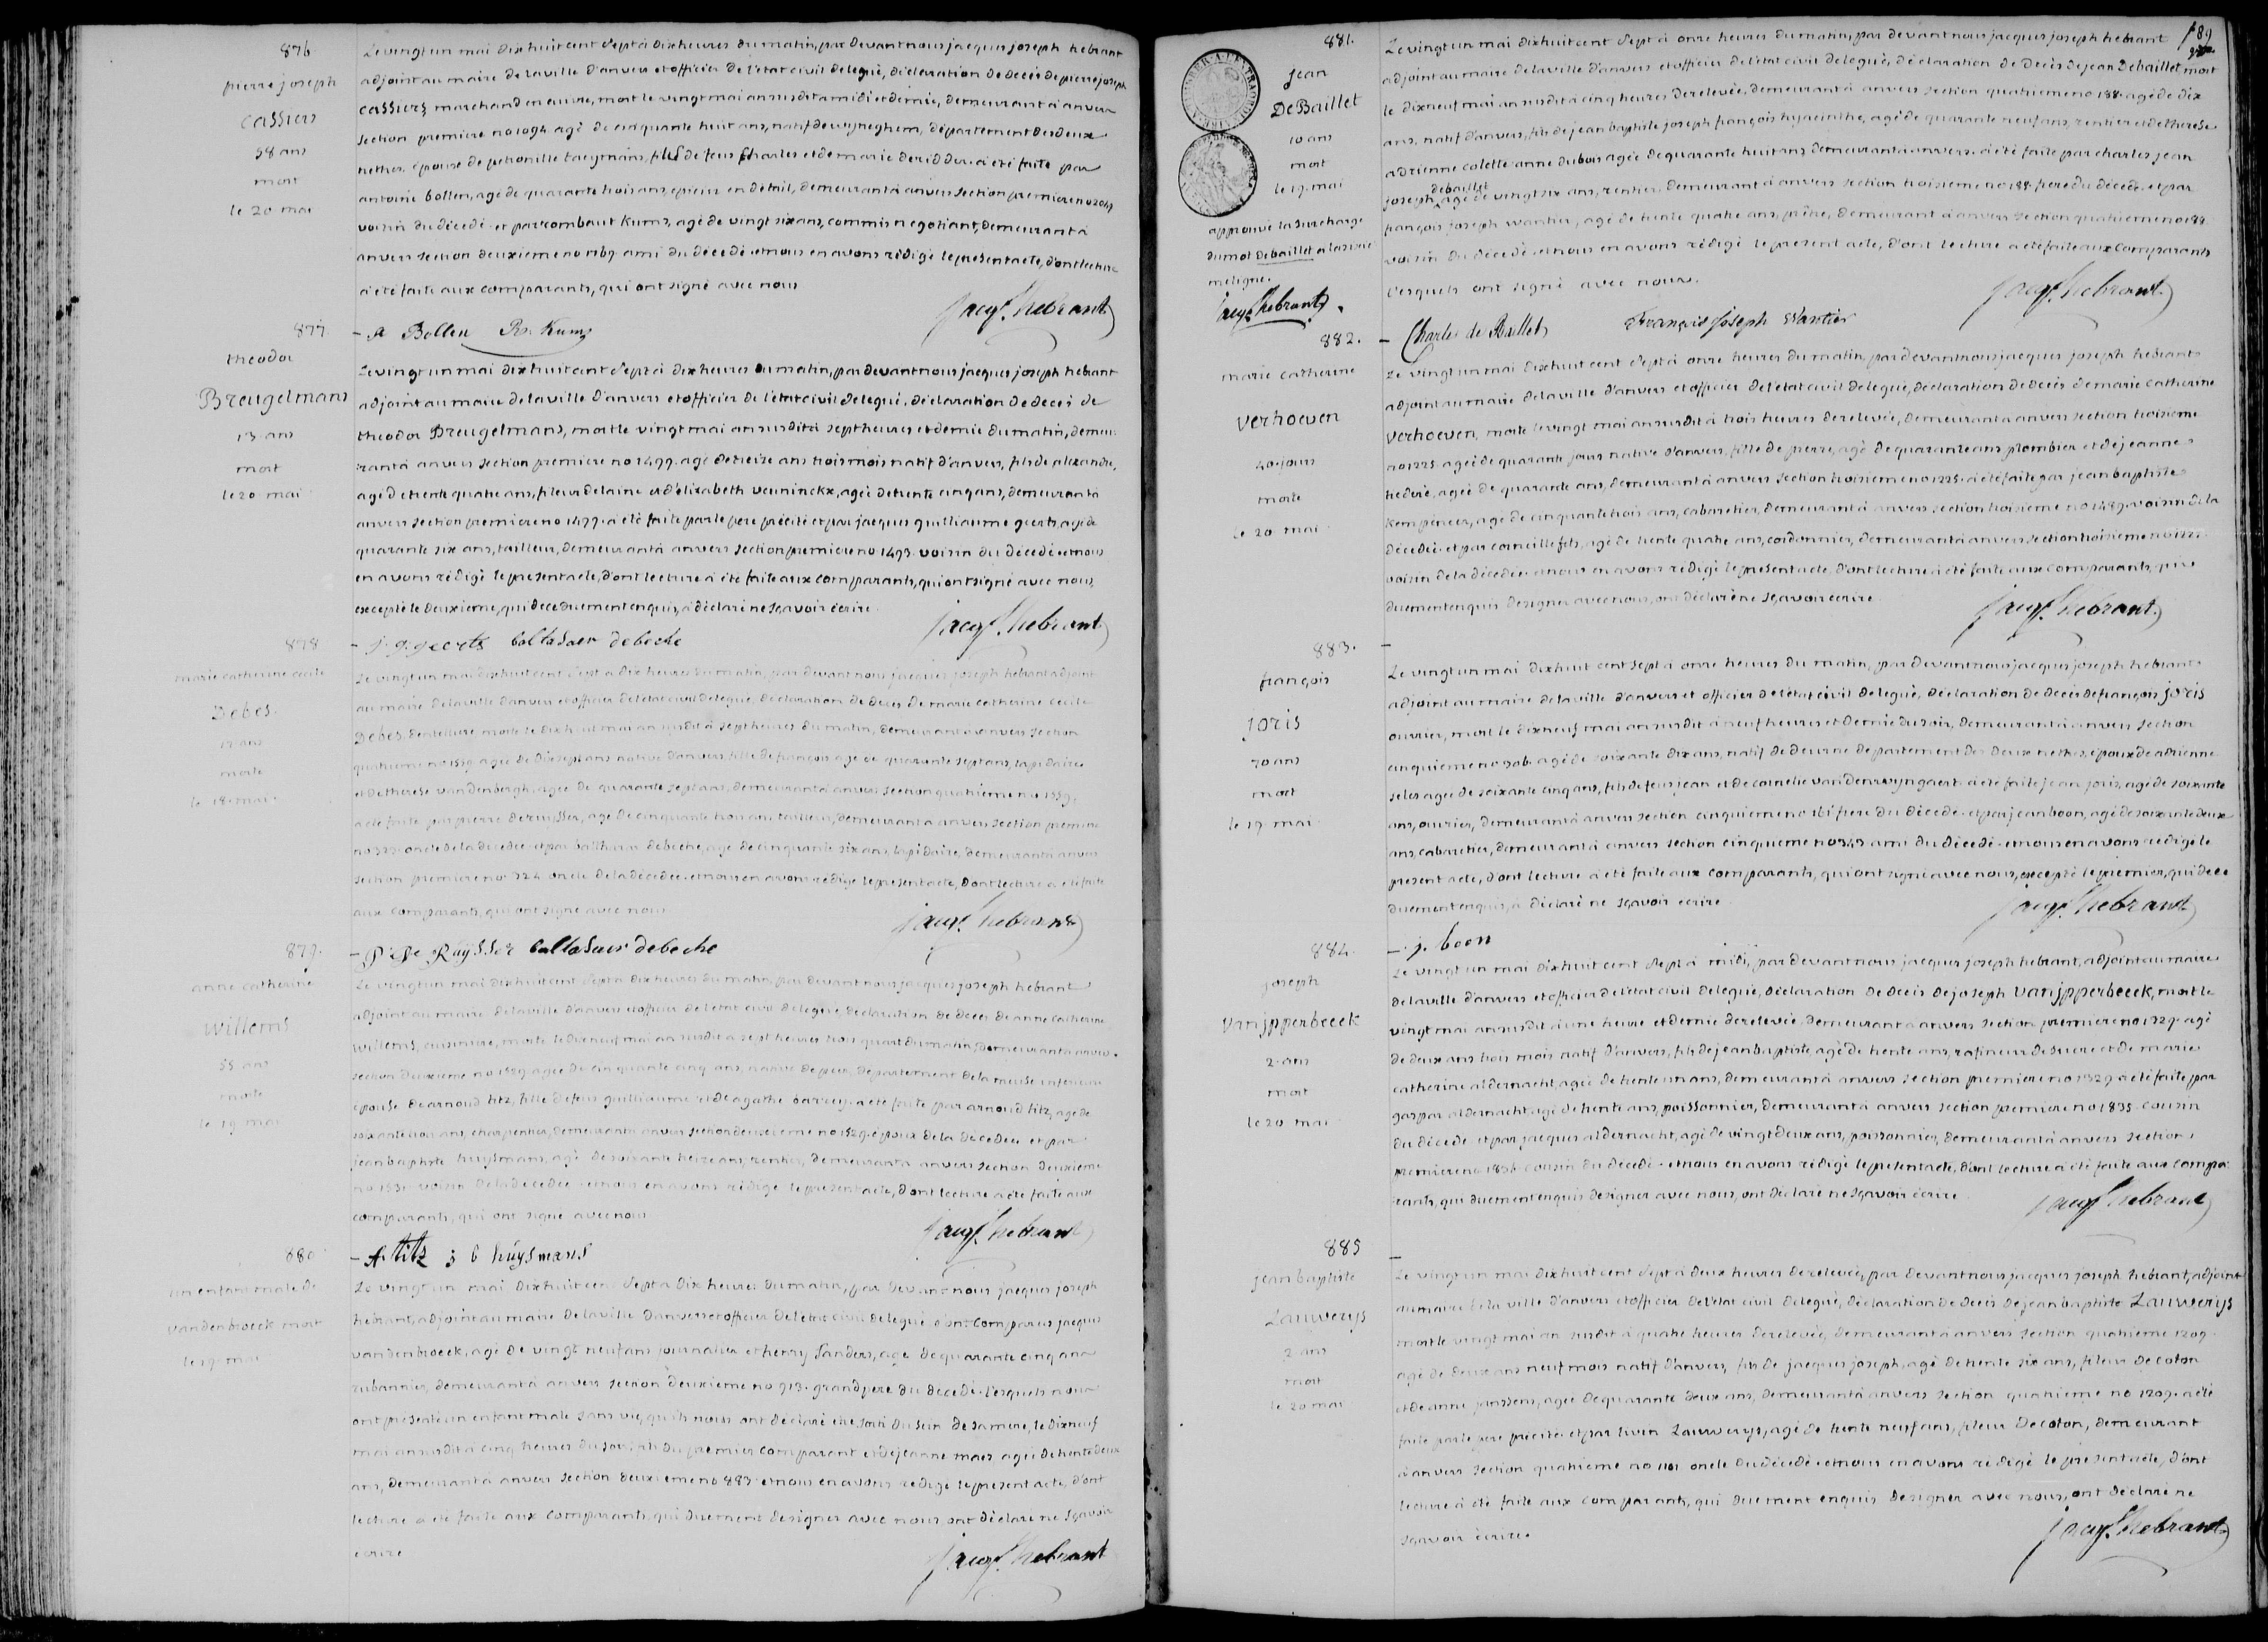 876
pierre joseph
cassiers
58 ans
mort
le 20 mai
Le vingt un mai dix huit cent sept à dix heures du matin, par devant nous jacques joseph hebrant
adjoint au maire de la ville d'anvers et officier de l'état civil delegué, déclaration de decès de pierre joseph
cassiers marchand en cuivre, mort le vingt mai an susdit à midi et demie, demeurant à anvers
section premiere no 1094 agé de cinquante huit ans, natif de wijneghem, département des deux
nethes. époux de petronille taeymans, fils de feus Charles et de marie de ridder. a été faite par
antoine bollen, agé de quarante trois ans, epicier en détail, demeurant à anvers section premiere no 2049
voisin du décedé et par rombaut Kums, agé de vingt six ans, commis negotiant, demeurant à
anvers section deuxieme no 1169 ami du décedé et nous en avons rédigé le present acte, d'ont lecture
a été faite aux comparants, qui ont signé avec nous
jacqs. hebrant
- A Bollen R. Kums
877.
theodor
Breugelmans
13 ans
mort
le 20 mai
Le vingt un mai dix huit cent sept à dix heures du matin, par devant nous jacques joseph hebrant
adjoint au maire de la ville d'anvers et officier de l'état civil delegué. déclaration de decès de
theodor Breugelmans, mort le vingt mai an susdit à sept heures et demie du matin, demeu
rant à anvers section premiere no 1499. agé de treize ans trois mois natif d'anvers, fils de alexandre,
agé de trente quatre ans, fileur de laine et d'elizabeth veuninckx, agée de trente cinq ans, demeurant à
anvers section premiere no 1499. a été faite par le pere précité et par jacques guilliaume geerts, agé de
quarante six ans, tailleur, demeurant à anvers section premiere no 1493 voisin du décedé et nous
en avons rédigé le present acte, d'ont lecture a été faite aux comparants, qui ont signé avec nous,
excepté le deuxieme, qui de ce duement enquis, a déclaré ne sçavoir écrire
jacqs. hebrant
- j. g. geerts baltasaer debeche
878
marie catherine cecile
Debes.
17 ans
morte
le 18 mai
Le vingt un mai dix huit cent sept à dix heures du matin, par devant nous jacques joseph hebrant adjoint
au maire de la ville d'anvers et officier de l'état civil delegué, déclaration de decès de marie catherine cecile
Debes. dentelliere, morte le dix huit mai an susdit à sept heures du matin, demeurant à anvers section
quatrieme no 1559 agée de dix sept ans native d'anvers fille de françois agé de quarante sept ans, lapidaire
et de therese vandenbergh, agée de quarante sept ans, demeurant à anvers section quatrieme no 1559.
a été faite par pierre deruysser, agé de cinquante trois ans, tailleur, demeurant à anvers section premiere
no 323 oncle de la décedée et par balthazar debeche, agé de cinquante six ans, lapidaire, demeurant à anvers
section premiere no 324 oncle de la décedée. et nous en avons rédigé le present acte, d'ont lecture a été faite
aux comparants, qui ont signé avec nous
jacqs. hebrant
- P De Ruysser baltasaer debeche
879.
anne catherine
Willems
55 ans
morte
le 19 mai
Le vingt un mai dix huit cent sept à dix heures du matin, par devant nous jacques joseph hebrant
adjoint au maire de la ville d'anvers et officier de l'état civil delegué, déclaration de decès de anne catherine
Willems, cuisiniere, morte le dix neuf mai an susdit à sept heures trois quart du matin, demeurant à anvers.
section deuxieme no 1529 agée de cinquante cinq ans, native de peer, département de la meuse inferieure
épouse de arnoud titz, fille de feus guilliaume et de agathe barrey. a été faite par arnoud titz, agé de
soixante trois ans, charpentier, demeurant à anvers section deuxieme no 1529. époux de la décedée et par
jean baptiste huysmans, agé de soixante treize ans, rentier, demeurant à anvers section deuxieme
no 1531. voisin de la décedée et nous en avons rédigé le present acte, d'ont lecture a été faite aux
comparants, qui ont signé avec nous
jacqs. hebrant
- A. titz j b huysmans
880
un enfant male de
vandenbroeck mort
le 19 mai
Le vingt un mai dix huit cent sept à dix heures du matin, par devant nous jacques joseph
hebrant, adjoint au maire de la ville d'anvers et officier de l'état civil delegué, sont comparus jacques
vandenbroeck, agé de vingt neuf ans journalier et henry Sanders, agé de quarante cinq ans
rubannier, demeurant à anvers section deuxieme no 913. grandpere du décedé. lesquels nous
ont presenté un enfant male sans vie, qu'ils nous ont déclaré être sorti du sein de sa mere, le dix neuf
mai an susdit à cinq heures du soir, fils du premier comparant et de jeanne maes agée de trente deux
ans, demeurant à anvers section deuxieme no 893 et nous en avons rédigé le present acte, d'ont
lecture a été faite aux comparants, qui duement de signer avec nous ont déclaré ne sçavoir
écrire
jacqs. hebrant
189
881.
jean
De Baillet
10 ans
mort
le 19. mai
approuvé la surcharge
du mot debaillet a la sixie
me ligne.
jacqs hebrant
Le vingt un mai dix huit cent sept à onze heures du matin, par devant nous jacques joseph hebrant
adjoint au maire de la ville d'anvers et officier de l'état civil delegué, déclaration de decès de jean Debaillet mort
le dix neuf mai an susdit à cinq heures de relevée, demeurant à anvers section quatrieme no 188. agé de dix
ans, natif d'anvers, fils de jean baptiste joseph françois hyacinthe, agé de quarante neuf ans, rentier et de therese
adrienne colette anne dubois agée de quarante huit ans, demeurant à anvers. a été faite par charles jean
debaillet
joseph, agé de vingt six ans, rentier demeurant à anvers section troisieme no 188. frere du décedé et par
françois joseph wantier, agé de trente quatre ans, prêtre, demeurant à anvers section quatrieme no 188
voisin du décedé et nous en avons rédigé le present acte, d'ont lecture a été faite aux comparants
lesquels ont signé avec nous.
jacqs. hebrant
- Charles de Baillet François Joseph Wantier
882.
marie catherine
Verhoeven
40 jours
morte
le 20 mai
Le vingt un mai dix huit cent sept à onze heures du matin, par devant nous jacques joseph hebrant
adjoint au maire de la ville d'anvers et officier de l'état civil delegué, déclaration de decès de marie catherine
Verhoeven, morte le vingt mai an susdit à trois heures de relevée, demeurant à anvers section troisieme
no 1225. agée de quarante jours native d'anvers, fille de pierre, agé de quarante ans plombier et de jeanne
agée de quarante ans, demeurant à anvers section troisieme no 1225. a été faite par jean baptiste
Kempeneer, agé de cinquante trois ans, cabaretier, demeurant à anvers section troisieme no 1489. voisin de la
décedée et par corneille fels, agé de trente quatre ans, cordonnier, demeurant à anvers section troisieme no 1227
voisin de la décedée. et nous en avons rédigé le present acte, d'ont lecture a été faite aux comparants, qui
duement enquis de signer avec nous, ont déclaré ne sçavoir écrire
jacqs. hebrant
883.
françois
Joris
70 ans
mort
le 19 mai
Le vingt un mai dix huit cent sept à onze heures du matin, par devant nous jacques joseph hebrant
adjoint au maire de la ville d'anvers et officier de l'état civil delegué, déclaration de decès de françois joris
ouvrier, mort le dix neuf mai an susdit à neuf heures et demie du soir, demeurant à anvers section
cinquieme no 306. agé de soixante dix ans, natif de deurne département des deux nethes. époux de adrienne
seles agée de soixante cinq ans, fils de feus jean et de cornelie vandenwyngaert. a été faite jean joris, agé de soixante
ans, ouvrier, demeurant à anvers section cinquieme no 161 frere du décedé. et par jean boon, agé de soixante deux
ans, cabaretier, demeurant à anvers section cinquieme no 343 ami du décedé. et nous en avons rédigé le
present acte, d'ont lecture a été faite aux comparants, qui ont signé avec nous, excepté le premier, qui de ce
duement enquis, a déclaré ne sçavoir écrire
jacqs. hebrant
- j. boon
884.
joseph
Vanijpperbeeck
2 ans
mort
le 20 mai
Le vingt un mai dix huit cent sept à midi, par devant nous jacques joseph hebrant, adjoint au maire
de la ville d'anvers et officier de l'état civil delegué, déclaration de decès de joseph Vanijpperbeeck, mort le
vingt mai an susdit à une heure et demie de relevée, demeurant à anvers section premiere no 1329. agé
de deux ans trois mois natif d'anvers, fils de jean baptiste, agé de trente ans, rafineur de sucre et de marie
catherine aldernacht, agée de trente un ans, demeurant à anvers section premiere no 1329 a été faite par
gaspar aldernacht, agé de trente ans, poissonnier, demeurant à anvers section premiere no 1835 cousin
du décedé et par jacques aldernacht, agé de vingt deux ans, poissonnier, demeurant à anvers section
premiere no 1836 cousin du décedé. et nous en avons rédigé le present acte, d'ont lecture a été faite aux compa
rants, qui duement enquis de signer avec nous, ont déclaré ne sçavoir écrire
jacqs. hebrant
885
jean baptiste
Lauwerijs
2 ans
mort
le 20 mai
Le vingt un mai dix huit cent sept à deux heures de relevée, par devant nous jacques joseph hebrant, adjoint
au maire de la ville d'anvers et officier de l'état civil delegué, déclaration de decès de jean baptiste Lauwerijs
mort le vingt mai an susdit à quatre heures de relevée, demeurant à anvers section quatrieme 1209.
agé de deux ans neuf mois natif d'anvers, fils de jacques joseph, agé de trente six ans, fileur de coton
et de anne janssens, agée de quarante deux ans, demeurant à anvers section quatrieme no 1209. a été
faite par le pere précité. et par livin Lauwerys, agé de trente neuf ans, fileur de coton, demeurant
à anvers section quatrieme no 1101 oncle du décedé. et nous en avons rédigé le present acte, d'ont
lecture a été faite aux comparants, qui duement enquis de signer avec nous, ont déclaré ne
sçavoir écrire.
jacqs. hebrant